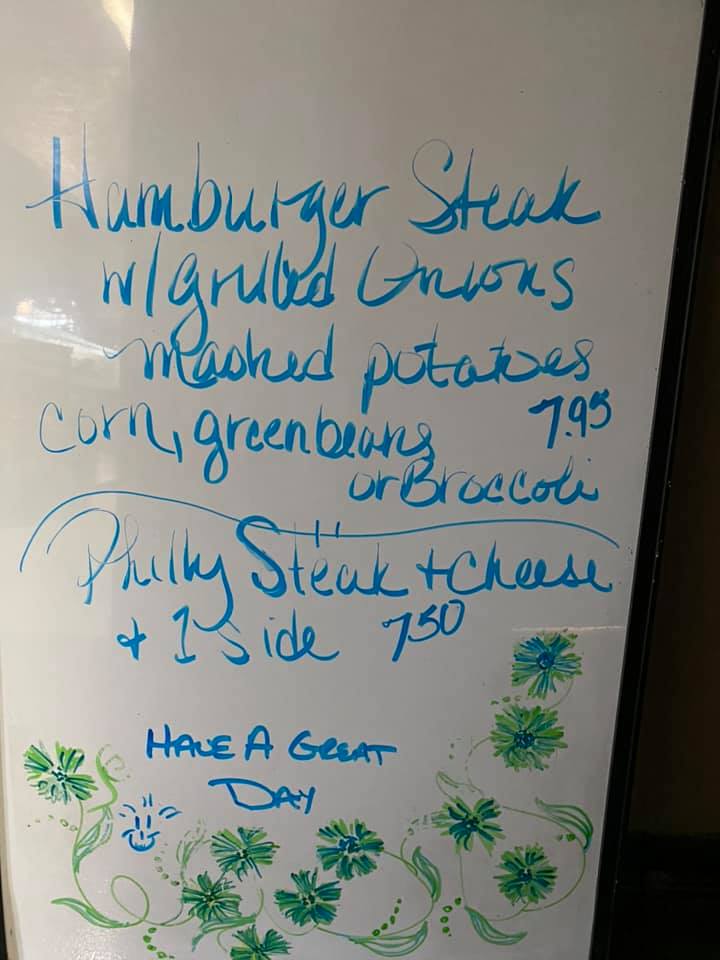 Hamburger Steak
w/grilled Onions
mashed potatoes
corn, greenbeans 7.95
or Broccoli
Philly Steak + Cheese
+ 1 side 7.50
HAVE A GREAT
DAY